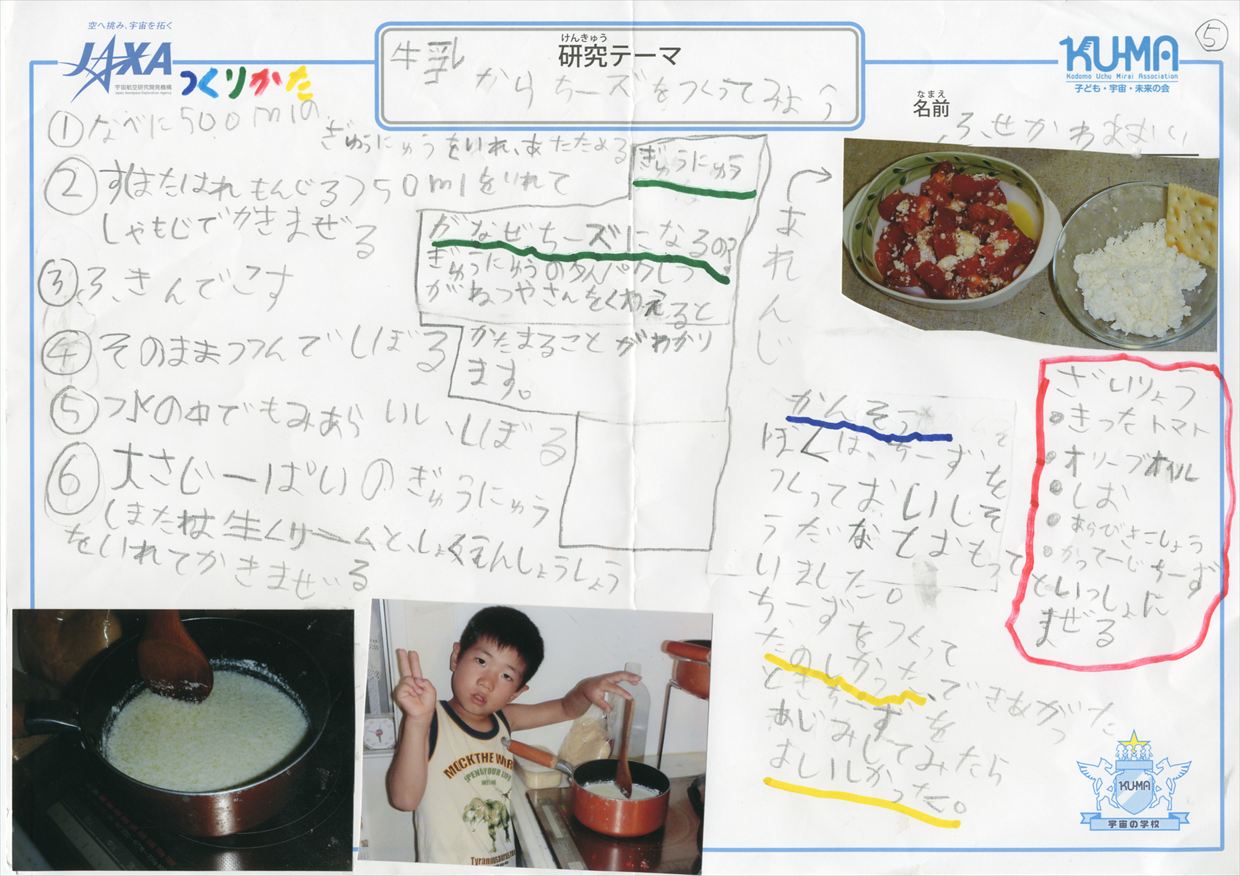 空へ挑み、宇宙を拓く
JAXA
宇宙航空研究開発機構
Japan Aerospace Exploration Agency
けんきゅう
研究テーマ
牛乳
からちーズをつくってみよう
KU-MA
Kodomo Uchu Mirai Association
子ども・宇宙・未来の会
5
なまえ
名前
つくりかた
①なべに500mlの
ぎゅうにゅうをいれ、あたためる
②す(またはれもんじる)50mlをいれて
しゃもじでかきまぜる
③ふきんでこす
④そのままつつんでしぼる
⑤水の中でもみあらいし、しぼる
⑥大さじ一ぱいのぎゅうにゅう
(または生くりームと、しょくえんしょうしょう
をいれてかきまぜる
ぎゅうにゅう
がなぜちーズになるの?
ぎゅうにゅうのたんパクしつ
がねつやさんをくわえると
かたまることがわかり
ます。
あれんじ
ざいりょう
きったトマト
オリーブオイル
しお
あらびきこしょう
かってーじちーず
といっしょに
まぜる
かんそう
ぼくは、ちーずを
つくっておいしそ
うだなとおもって
いました。
ちーずをつくって
たのしかった、できあがった
ときちーずを
あじみしてみたら
おいしかった。
MECKTHEWAR
Tyrannosaurus
KU-MA
宇宙の学校